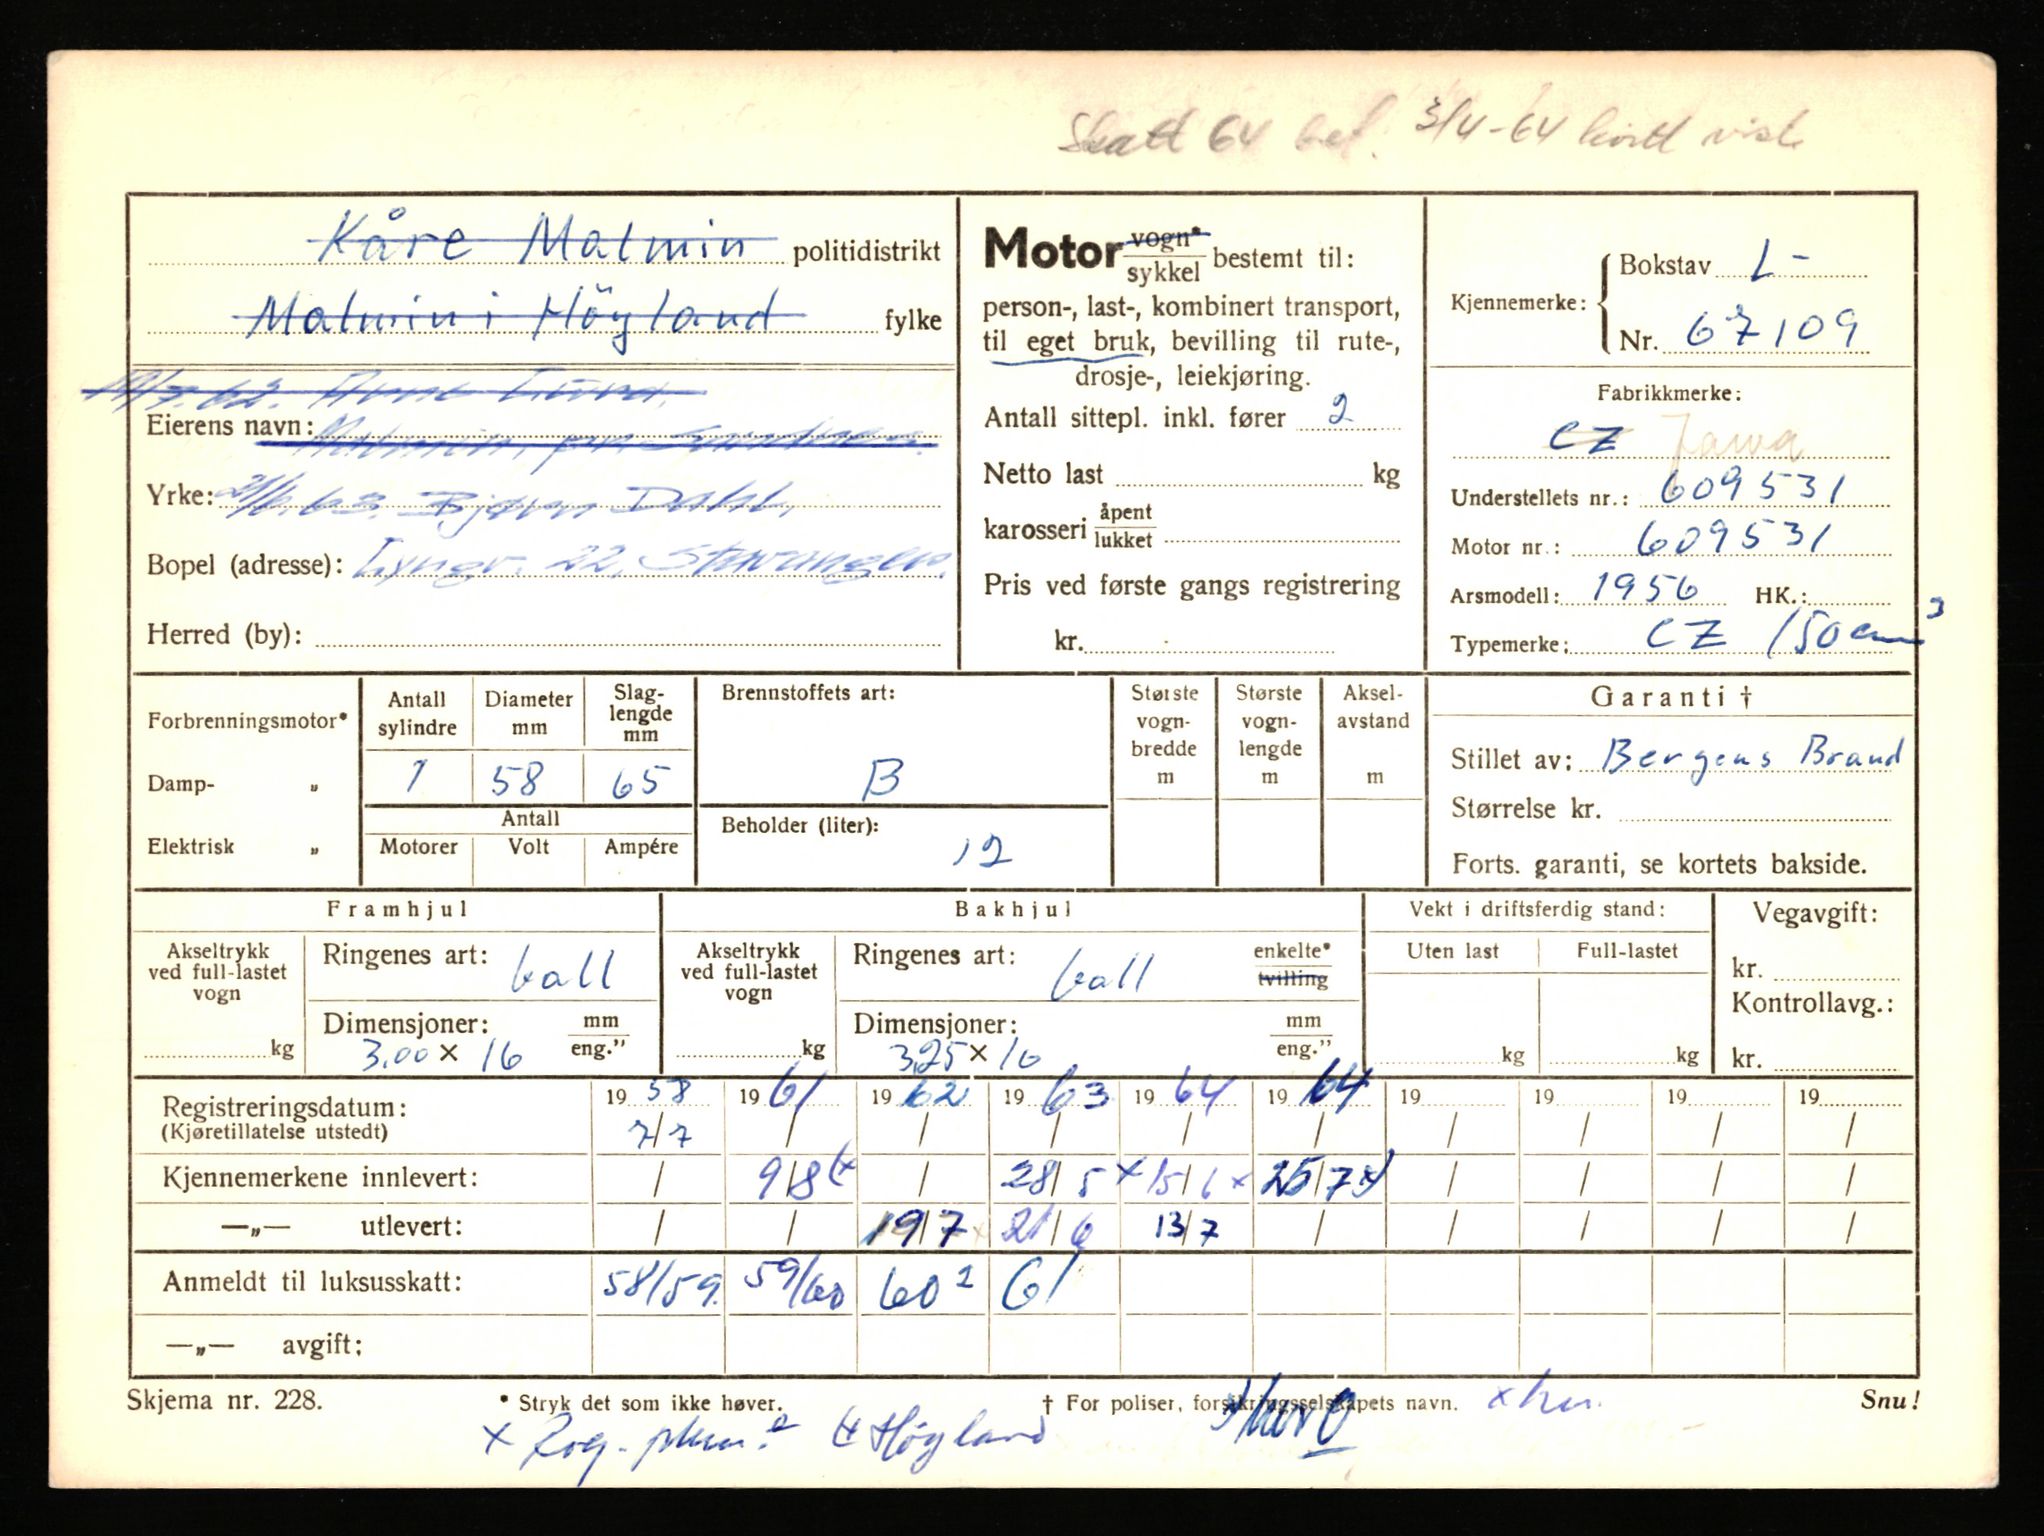 Skatt 64 bet. 3/4-64 kvitt vist
Kåre Malmin politidistrikt
Malmin i Höyland fylke
Motor vogn* / sykkel bestemt til:
person-, last-, kombinert transport,
til eget bruk, bevilling til rute-,
drosje-, leiekjøring.
Antall sittepl. inkl. fører 2
Netto last kg
karosseri åpent / lukket
Pris ved første gangs registrering
kr.
Kjennemerke: Bokstav L-
Nr. 67109
Fabrikkmerke:
CZ Jawa
Understellets nr.: 609531
Motor nr.: 609531
Arsmodell: 1956 HK.:
Typemerke: CZ 150 cm3
Eierens navn: Malmin,
Yrke: 21/6.63. Bjørn Dahl,
Bopel (adresse): Lyngv. 22, Stavanger.
Herred (by):
Forbrenningsmotor*
Damp- „
Elektrisk „
Antall sylindre
Diameter mm
Slag-lengde mm
1 58 65
Antall
Motorer Volt Ampére
Brennstoffets art:
B
Beholder (liter):
12
Største vogn-bredde m
Største vogn-lengde m
Aksel-avstand m
Garanti †
Stillet av: Bergens Brand
Størrelse kr.
Forts. garanti, se kortets bakside.
Framhjul
Akseltrykk ved full-lastet vogn kg
Ringenes art: ball
Dimensjoner: mm / eng."
3.00 × 16
Bakhjul
Akseltrykk ved full-lastet vogn kg
Ringenes art: ball enkelte* / tvilling
Dimensjoner: mm / eng."
3.25 × 16
Vekt i driftsferdig stand:
Uten last Full-lastet
kg kg
Vegavgift:
kr.
Kontrollavg.:
kr.
Registreringsdatum: 1958 1961 1962 1963 1964 1964 19 19 19 19
(Kjøretillatelse utstedt) 7/7 / / / / / / / / /
Kjennemerkene innlevert: / 9/8 (x / 28/5 x 15/6 x 25/7 x) / / / /
—„— utlevert: / / 19/7 x 21/6 13/7 / / / / /
Anmeldt til luksusskatt: 58/59. 59/60 60² 61
—„— avgift:
Skjema nr. 228.
* Stryk det som ikke høver.
† For poliser, forsikringsselskapets navn.
Snu!
Høyland